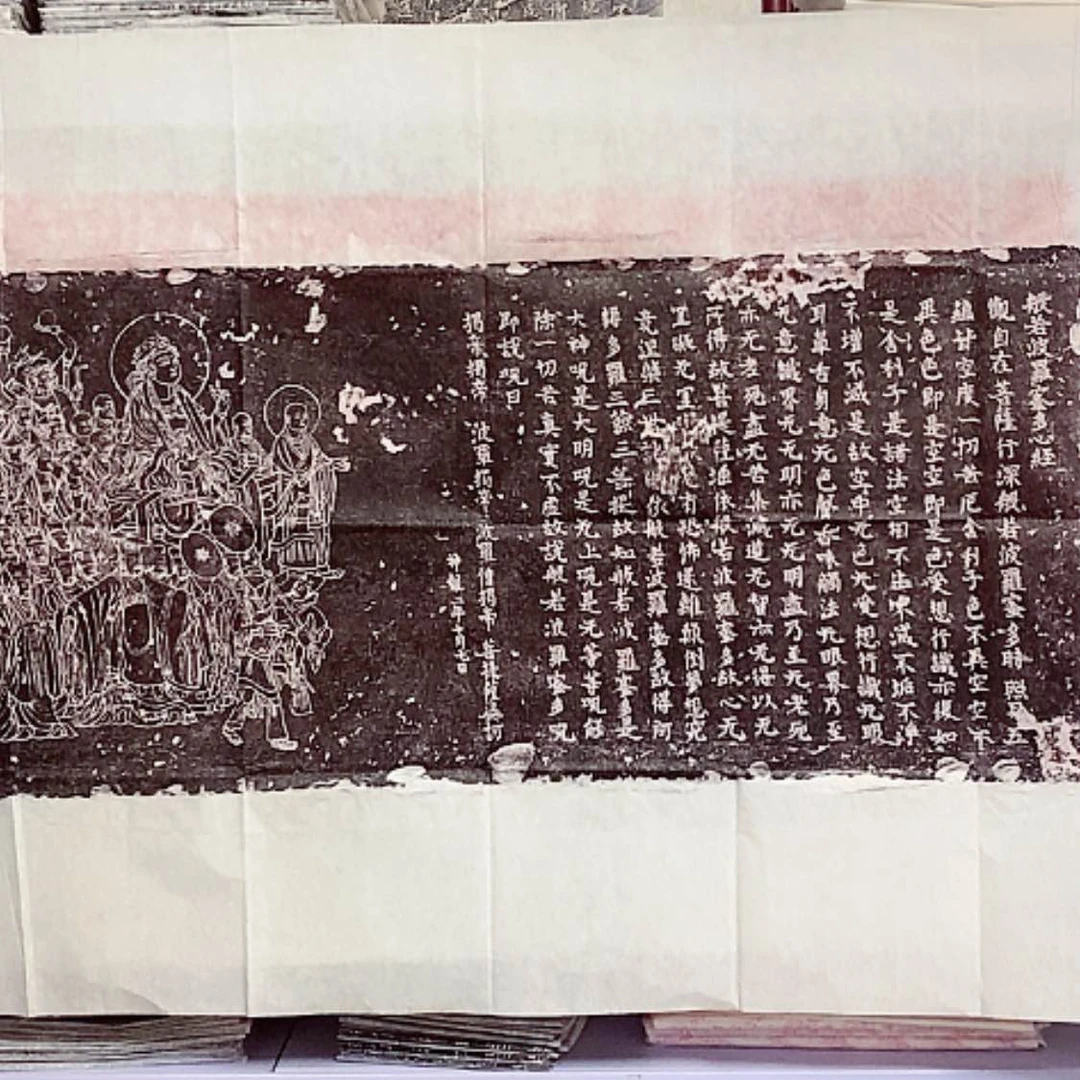 般若波羅蜜多心經
觀自在菩薩行深般若波羅蜜多時 照見五
蘊皆空度一切苦厄舍利子色不異空空不
異色色即是空空即是色受想行識亦復如
是舍利子是諸法空相不生不滅不垢不淨
不增不減是故空中无色无受想行識无眼
耳鼻舌身意无色聲香味觸法无眼界乃至
无意識界无无明亦无无明盡乃至无老死
亦无老死盡无苦集滅道无智亦无得以无
所得故菩提薩埵依般若波羅蜜多故心无
罣礙无罣有恐怖遠離顛倒夢想究
竟涅槃三世依般若波羅蜜多故得阿
耨多羅三藐三菩提故知般若波羅蜜多是
大神呪是大明呪是无上呪是无等等呪能
除一切苦真實不虛故說般若波羅蜜多呪
即說呪曰
揭帝揭帝 波羅揭帝 波羅僧揭帝 菩提薩婆訶
神龍二年七日